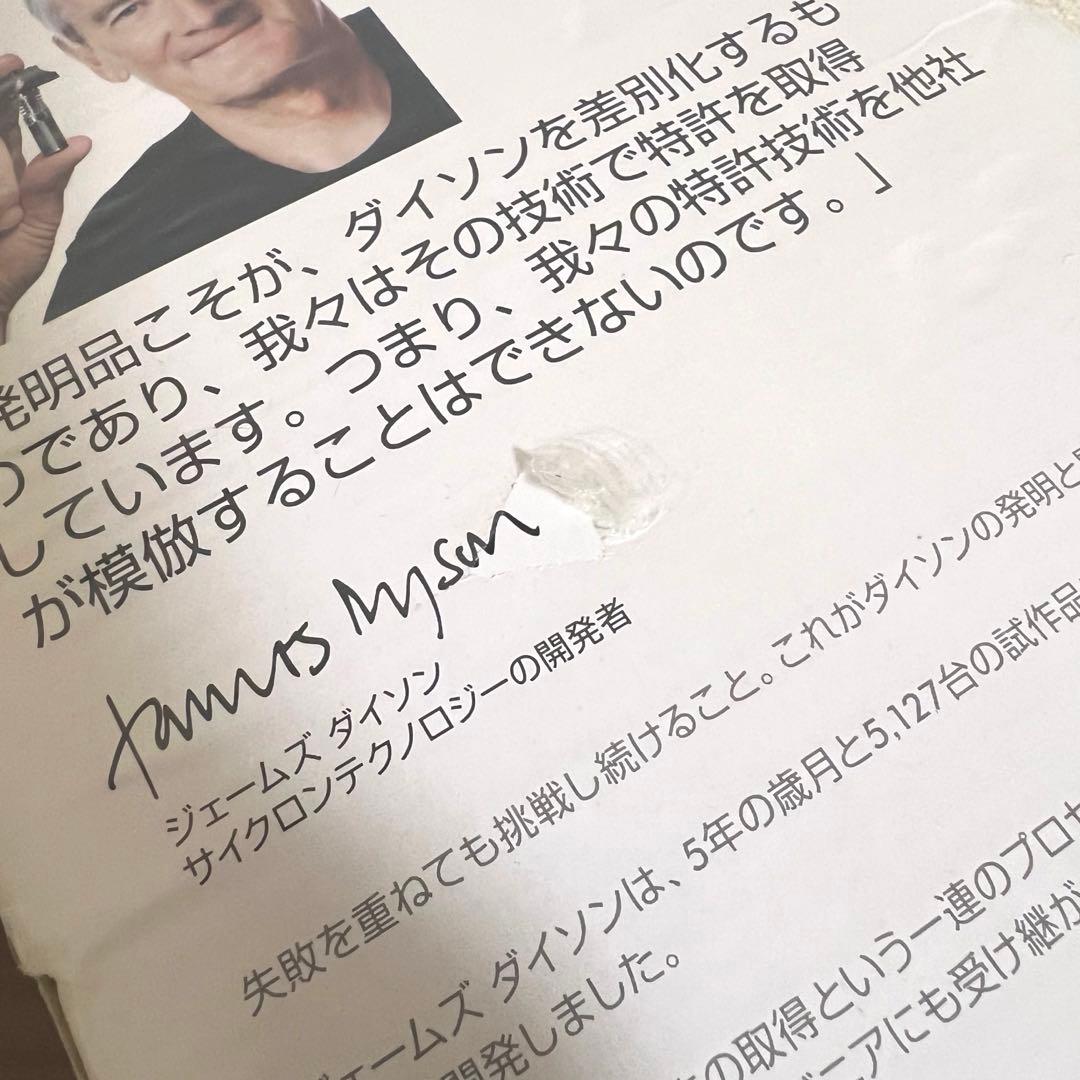 発明品こそが、ダイソンを差別化するも
のであり、我々はその技術で特許を取得
しています。つまり、我々の特許技術を他社
が模倣することはできないのです。」
James Dyson
ジェームズ ダイソン
サイクロンテクノロジーの開発者
失敗を重ねても挑戦し続けること。これがダイソンの発明と
ジェームズ ダイソンは、5年の歳月と5,127台の試作品
開発しました。
の取得という一連のプロセ
ニアにも受け継が